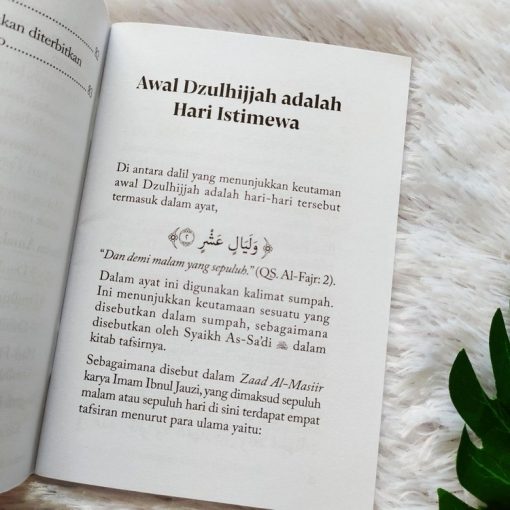 kan diterbitkan
.......... 82
o.......... 83
Awal Dzulhijjah adalah
Hari Istimewa
Di antara dalil yang menunjukkan keutaman
awal Dzulhijjah adalah hari-hari tersebut
termasuk dalam ayat,
﴿ وَلَيَالٍ عَشْرٍ ٢ ﴾
“Dan demi malam yang sepuluh.” (QS. Al-Fajr: 2).
Dalam ayat ini digunakan kalimat sumpah.
Ini menunjukkan keutamaan sesuatu yang
disebutkan dalam sumpah, sebagaimana
disebutkan oleh Syaikh As-Sa’di dalam
kitab tafsirnya.
Sebagaimana disebut dalam Zaad Al-Masiir
karya Imam Ibnul Jauzi, yang dimaksud sepuluh
malam atau sepuluh hari di sini terdapat empat
tafsiran menurut para ulama yaitu: